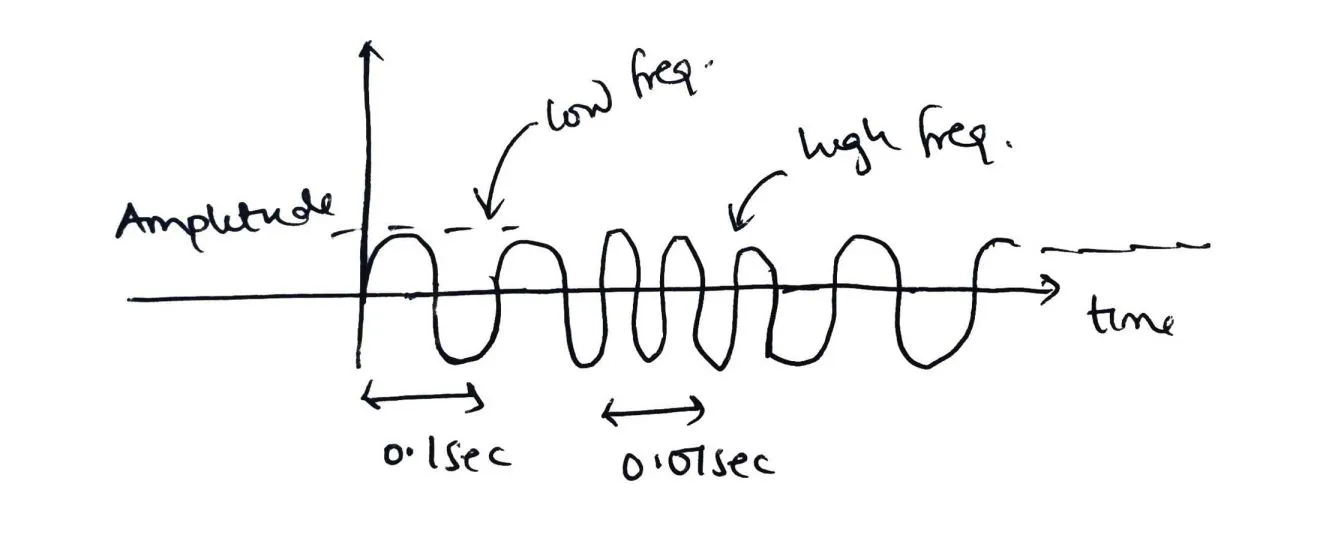 low freq.
high freq.
Amplitude
time
0.1sec
0.01sec